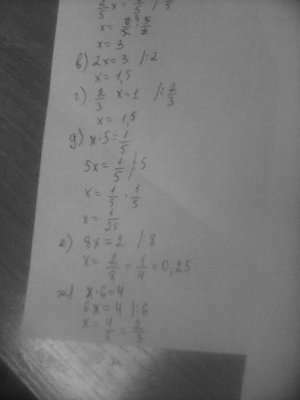 2/5 x = 2/5 /:
x = 
x = 3
в) 2x = 3 /:2
x = 1,5
г) 2/3 x = 1 /: 2/3
x = 1,5
д) x·5 = 1/5
5x = 1/5 /:5
x = 1/5 · 1/5
x = 1/25
е) 8x = 2 /:8
x = 2/8 = 1/4 = 0,25
ж) x·6 = 4
6x = 4 /:6
x = 4/6 = 2/3